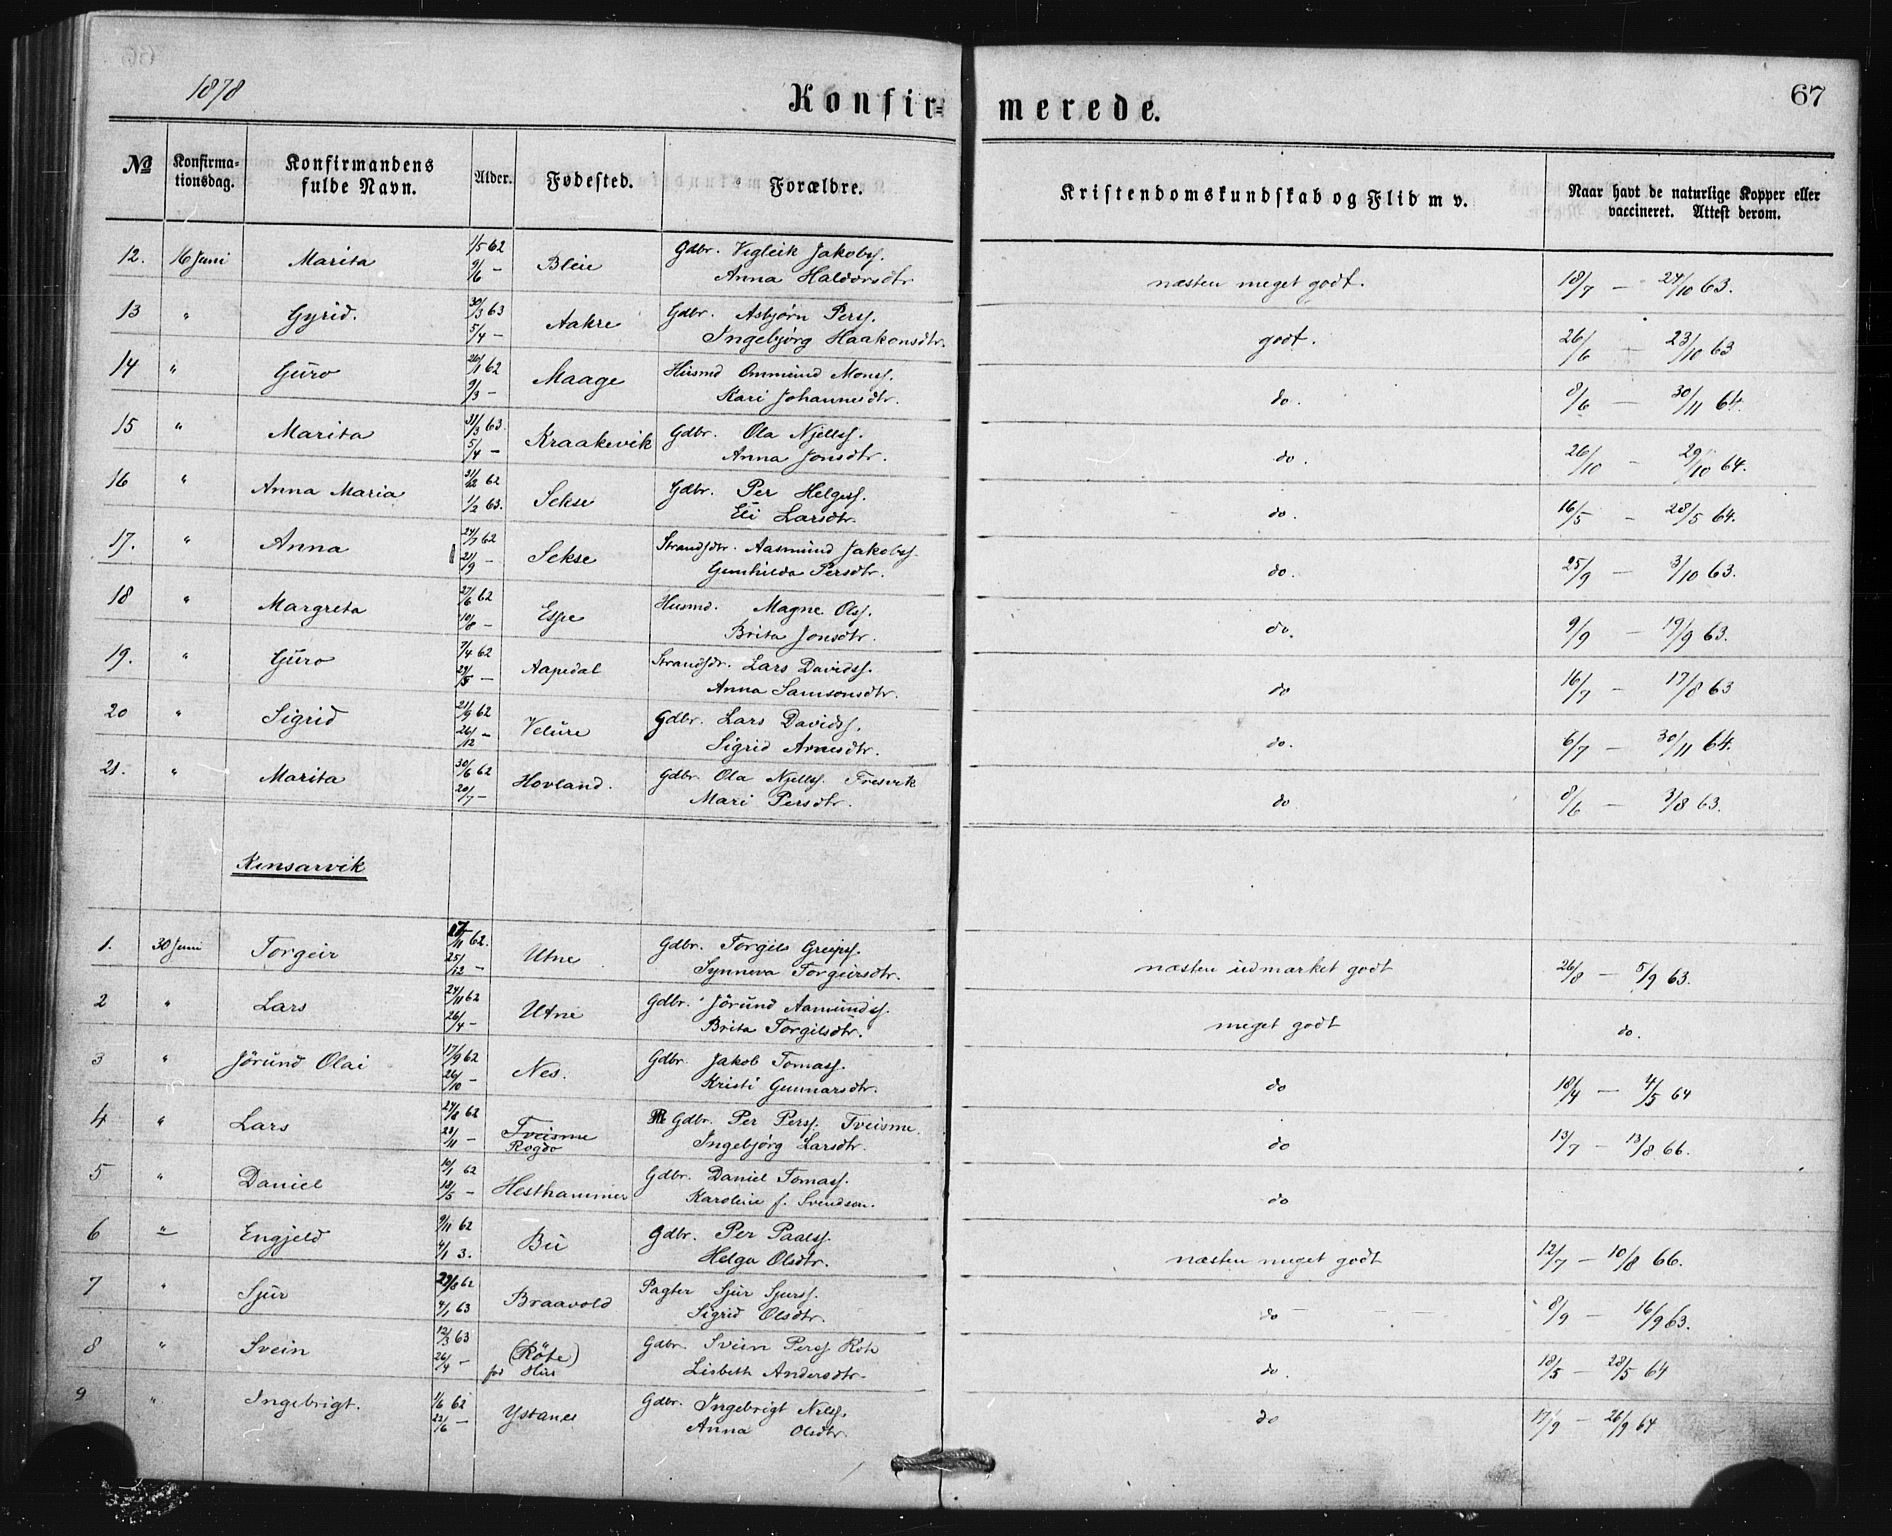 1878
Konfirmerede.
67
№ Konfirmationsdag. Konfirmandens fulde Navn. Alder. Fødested. Forældre. Kristendomskundskab og Flid m v. Naar havt de naturlige Kopper eller vaccineret. Attest derom.
12. 16 Juni Marita 1/5 62 Bleie Gdbr. Vigleik Jakobsf. næsten meget godt. 18/7 — 24/10 63.
9/6 — Anna Haldorsdtr
13 " Gyrid. 30/3 63 Aakre Gdbr. Asbjørn Persf. godt. 26/6 — 23/10 63
5/4 — Ingebjørg Haakonsdtr.
14 " Guro 26/1 62 Maage Husmd Ommund Monsf. do. 8/6 — 30/11 64.
9/3 — Kari Johannesdtr.
15 " Marita 31/3 63. Kraakevik Gdbr. Ola Njellsf. do. 26/10 — 29/10 64.
5/4 — Anna Jonsdtr.
16 " Anna Maria 31/12 62 Sekse Gdbr. Per Helgesf. do. 16/5 — 28/5 64.
1/2 63. Eli Larsdtr.
17. " Anna 24/7 62 Sekse Strandsdtr. Aasmund Jakobsf. do. 25/9 — 3/10 63.
21/9 — Gunhilda Persdtr.
18 " Margreta 27/6 62 Espe Husmd. Magne Olsf. do. 9/9 — 19/9 63.
10/8 — Brita Jonsdtr.
19. " Guro 7/4 62 Aapedal Strandsdr. Lars Davidsf. do 16/7 — 17/8 63
29/5 — Anna Samsonsdtr.
20 " Sigrid 21/9 62 Velure Gdbr. Lars Davidsf. do. 6/7 — 30/11 64.
26/12 — Sigrid Arnesdtr.
21. " Marita 30/6 62 Hovland. Gdbr. Ola Njellsf. Tresvik do 8/6 — 3/8 63.
20/7 — Mari Persdtr.
Kinsarvik
1. 30 Juni Torgeir /11 62. Utne Gdbr. Torgils Greipsf. næsten udmærket godt 26/8 — 5/9 63.
25/12 — Synneva Torgeirsdtr.
2 " Lars 24/11 62 Utne Gdbr. Jørund Aamundsf. meget godt do.
26/4 — Brita Torgilsdtr.
3 " Jørund Olai 17/9 62 Nes. Gdbr. Jakob Tomasf. do 18/4 — 4/5 64
26/10 — Kristi Gunnarsdtr.
4 " Lars 24/8 62 Tveisme Gdbr. Per Persf. Tveisme. do 13/7 — 13/8 66.
23/11 — Rogdo Ingebjørg Larsdtr.
5 " Daniel 10/1 62 Hesthammer Gdbr. Daniel Tomasf. do
18/5 — Karoline f. Svendsen.
6 " Engjeld 9/11 62 Bu Gdbr. Per Paalsf. næsten meget godt 12/7 — 10/8 66.
4/1 3. Helga Olsdtr.
7 " Sjur 29/8 62 Braavold Pagter Sjur Sjursf. do — 8/9 — 16/9 63.
4/1 63 Sigrid Olsdtr.
8 " Svein 12/3 63 (Røte) Gdbr. Svein Persf Røte do. 18/5 — 28/5 64
26/4 — fød Hus Lisbeth Andersdtr.
9 " Ingebrigt. 1/6 62 Ystanes Gdbr. Ingebrigt Nilsf. do 17/9 — 26/9 64
22/6 — Anna Olsdtr.